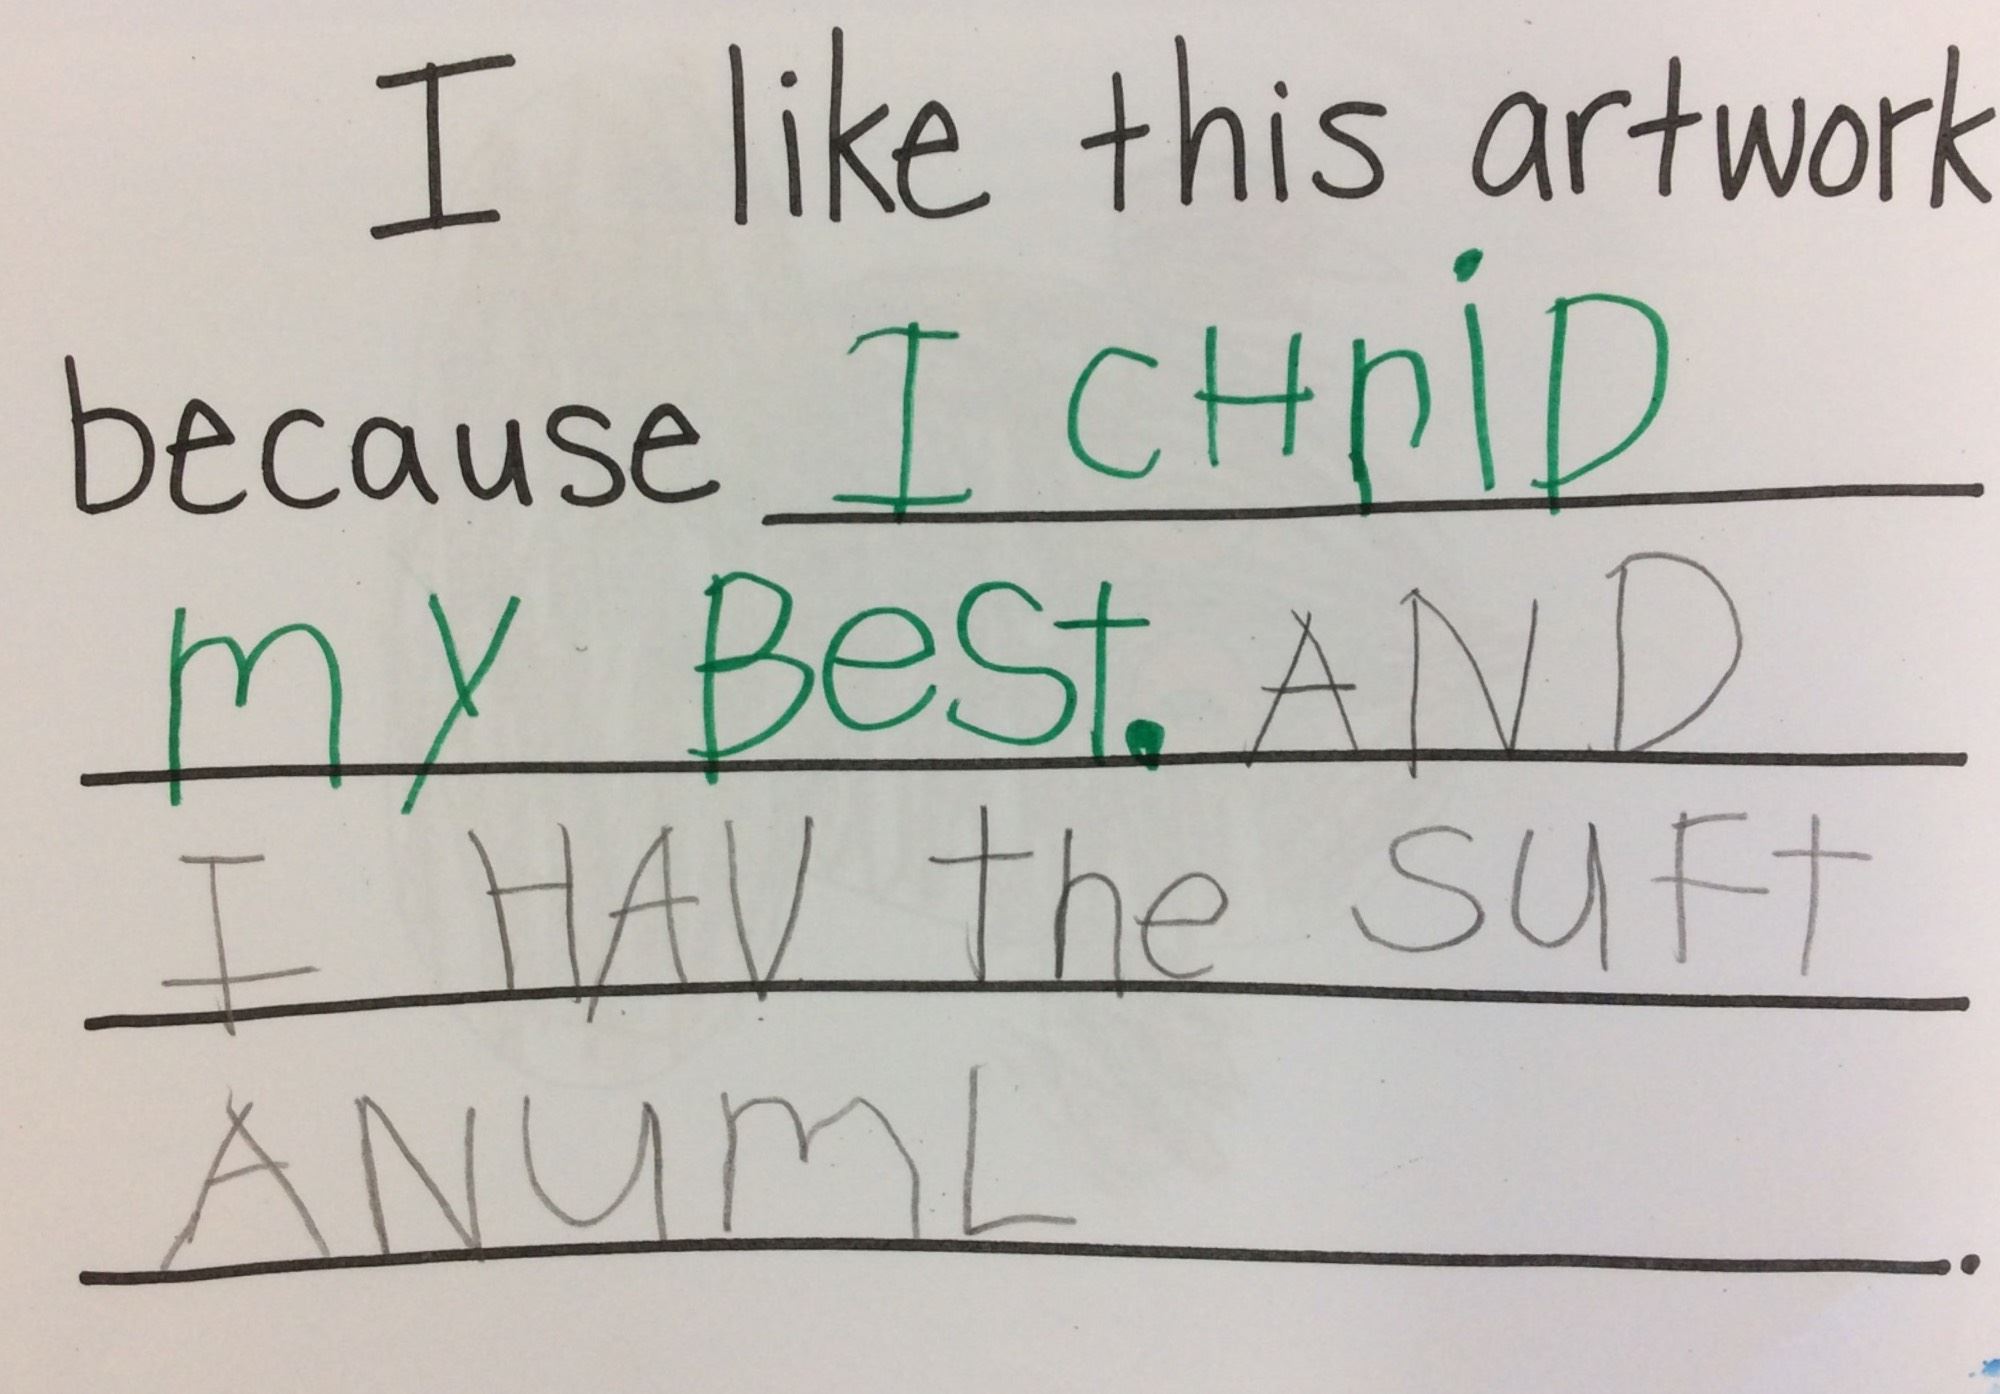 I like this artwork
because I cHriD
my BeSt. AND
I HAV the SuFt
ANUmL.